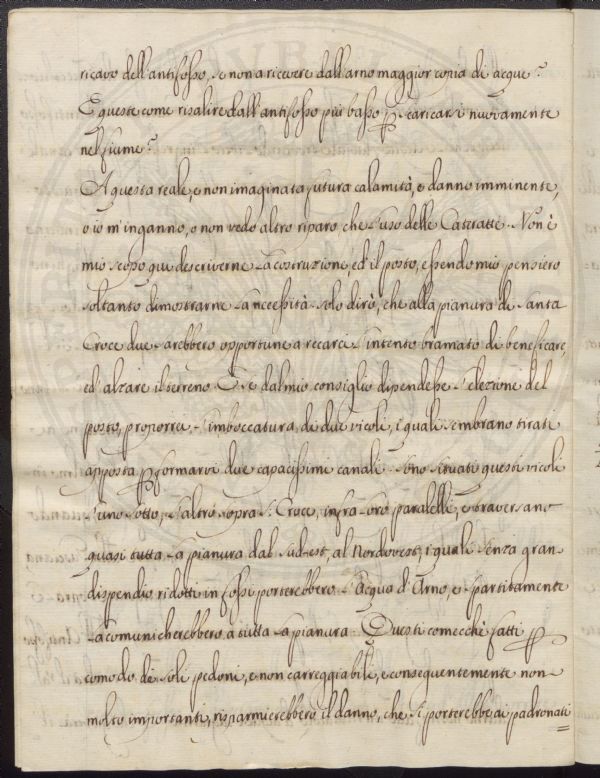 ricavo dell'antifosso, e non a ricevere dall'arno maggior copia di acque?
E queste come risalire dall'antifosso più basso p. scaricarsi nuovamente
nel fiume?
A questa reale, e non imaginata futura calamità, e danno imminente,
o io m'inganno, o non vedo altro riparo, che l'uso delle Cateratte. Non è
mio scopo qui descriverne la costruzione, ed il posto, essendo mio pensiero
soltanto dimostrarne la necessità. solo dirò, che alla pianura di Santa
Croce due sarebbero opportune a recarci l'intento bramato di beneficare,
ed' alzare il terreno. E se dal mio consiglio dipendesse l'elezione del
posto, proporrei l'imboccatura di due vicoli, i quali sembrano tirati
apposta p formarvi due capacissimi canali. Sono situati questi vicoli
l'uno sotto, l'altro sopra S. Croce, infra loro paralelli, e traversano
quasi tutta la pianura dal Sud-est, al Nordovest, i quali senza gran
dispendio ridotti in fossi porterebbero l'Acqua d'Arno, e spartitamente
la comunicherebbero a tutta la pianura. Questi comecchè fatti p
comodo de soli pedoni, e non carreggiabili, e conseguentemente non
molto importanti, risparmierebbero il danno, che si porterebbe ai padronati